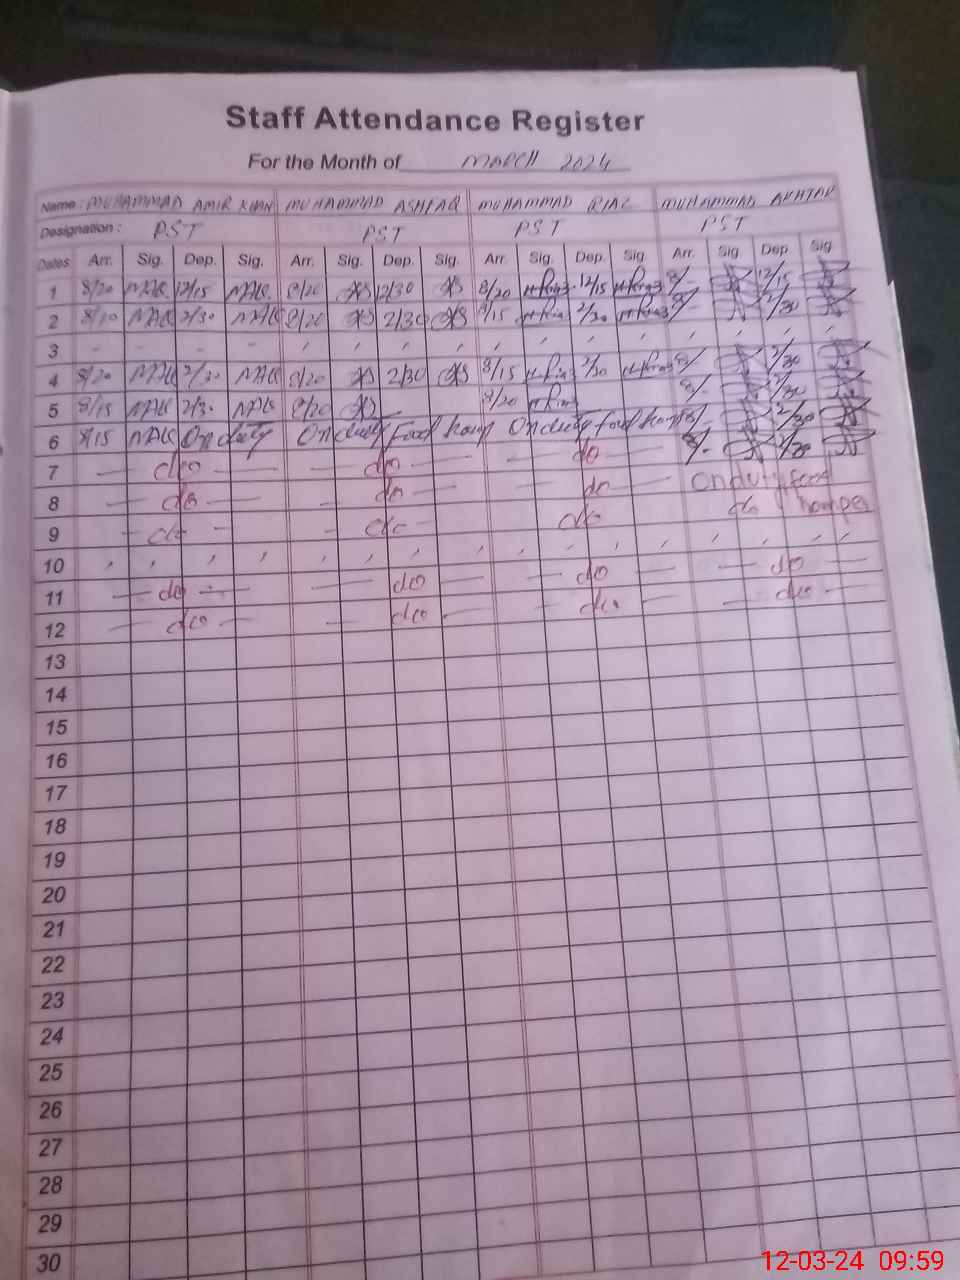 Staff Attendance Register
For the Month of MARCH 2024
Name : MUHAMMAD AMIR KHAN MUHAMMAD ASHFAQ MUHAMMAD RIAZ MUHAMMAD AKHTAR
Designation : PST PST PST PST
Dates Arr. Sig. Dep. Sig. Arr. Sig. Dep. Sig. Arr. Sig. Dep. Sig. Arr. Sig. Dep. Sig.
1 8/20 12/15 8/20 12/30 8/20 12/15 8/- 12/15
2 8/10 2/30 8/20 2/30 8/15 2/30 8/- 2/30
3
4 8/20 2/30 8/20 2/30 8/15 2/30 8/- 2/30
5 8/15 2/30 8/20 8/20 8/- 2/30
6 8/15 On duty On duty Food On duty food 8/- 2/30
7 do do do On duty food
8 do do do do hamper
9 do do do
10
11 do do do do
12 do do do do
13
14
15
16
17
18
19
20
21
22
23
24
25
26
27
28
29
30
12-03-24 09:59